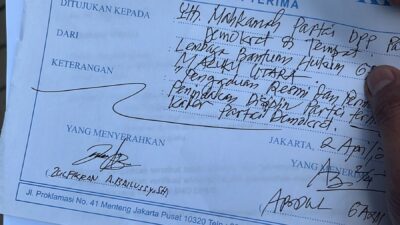 TERIMA
DITUJUKAN KEPADA Yth. Mahkamah Partai DPP Pa
Demokrat di Tempat
DARI Lembaga Bantuan Hukum G
MALUKU UTARA
KETERANGAN "Pengaduan Resmi dan Perm
Penindakan Disiplin Partai terha
Kader Partai Demokrat.
JAKARTA, 2 April
YANG MENYERAHKAN YANG MENERI
ABDUL
Jl. Proklamasi No. 41 Menteng Jakarta Pusat 10320 Telp